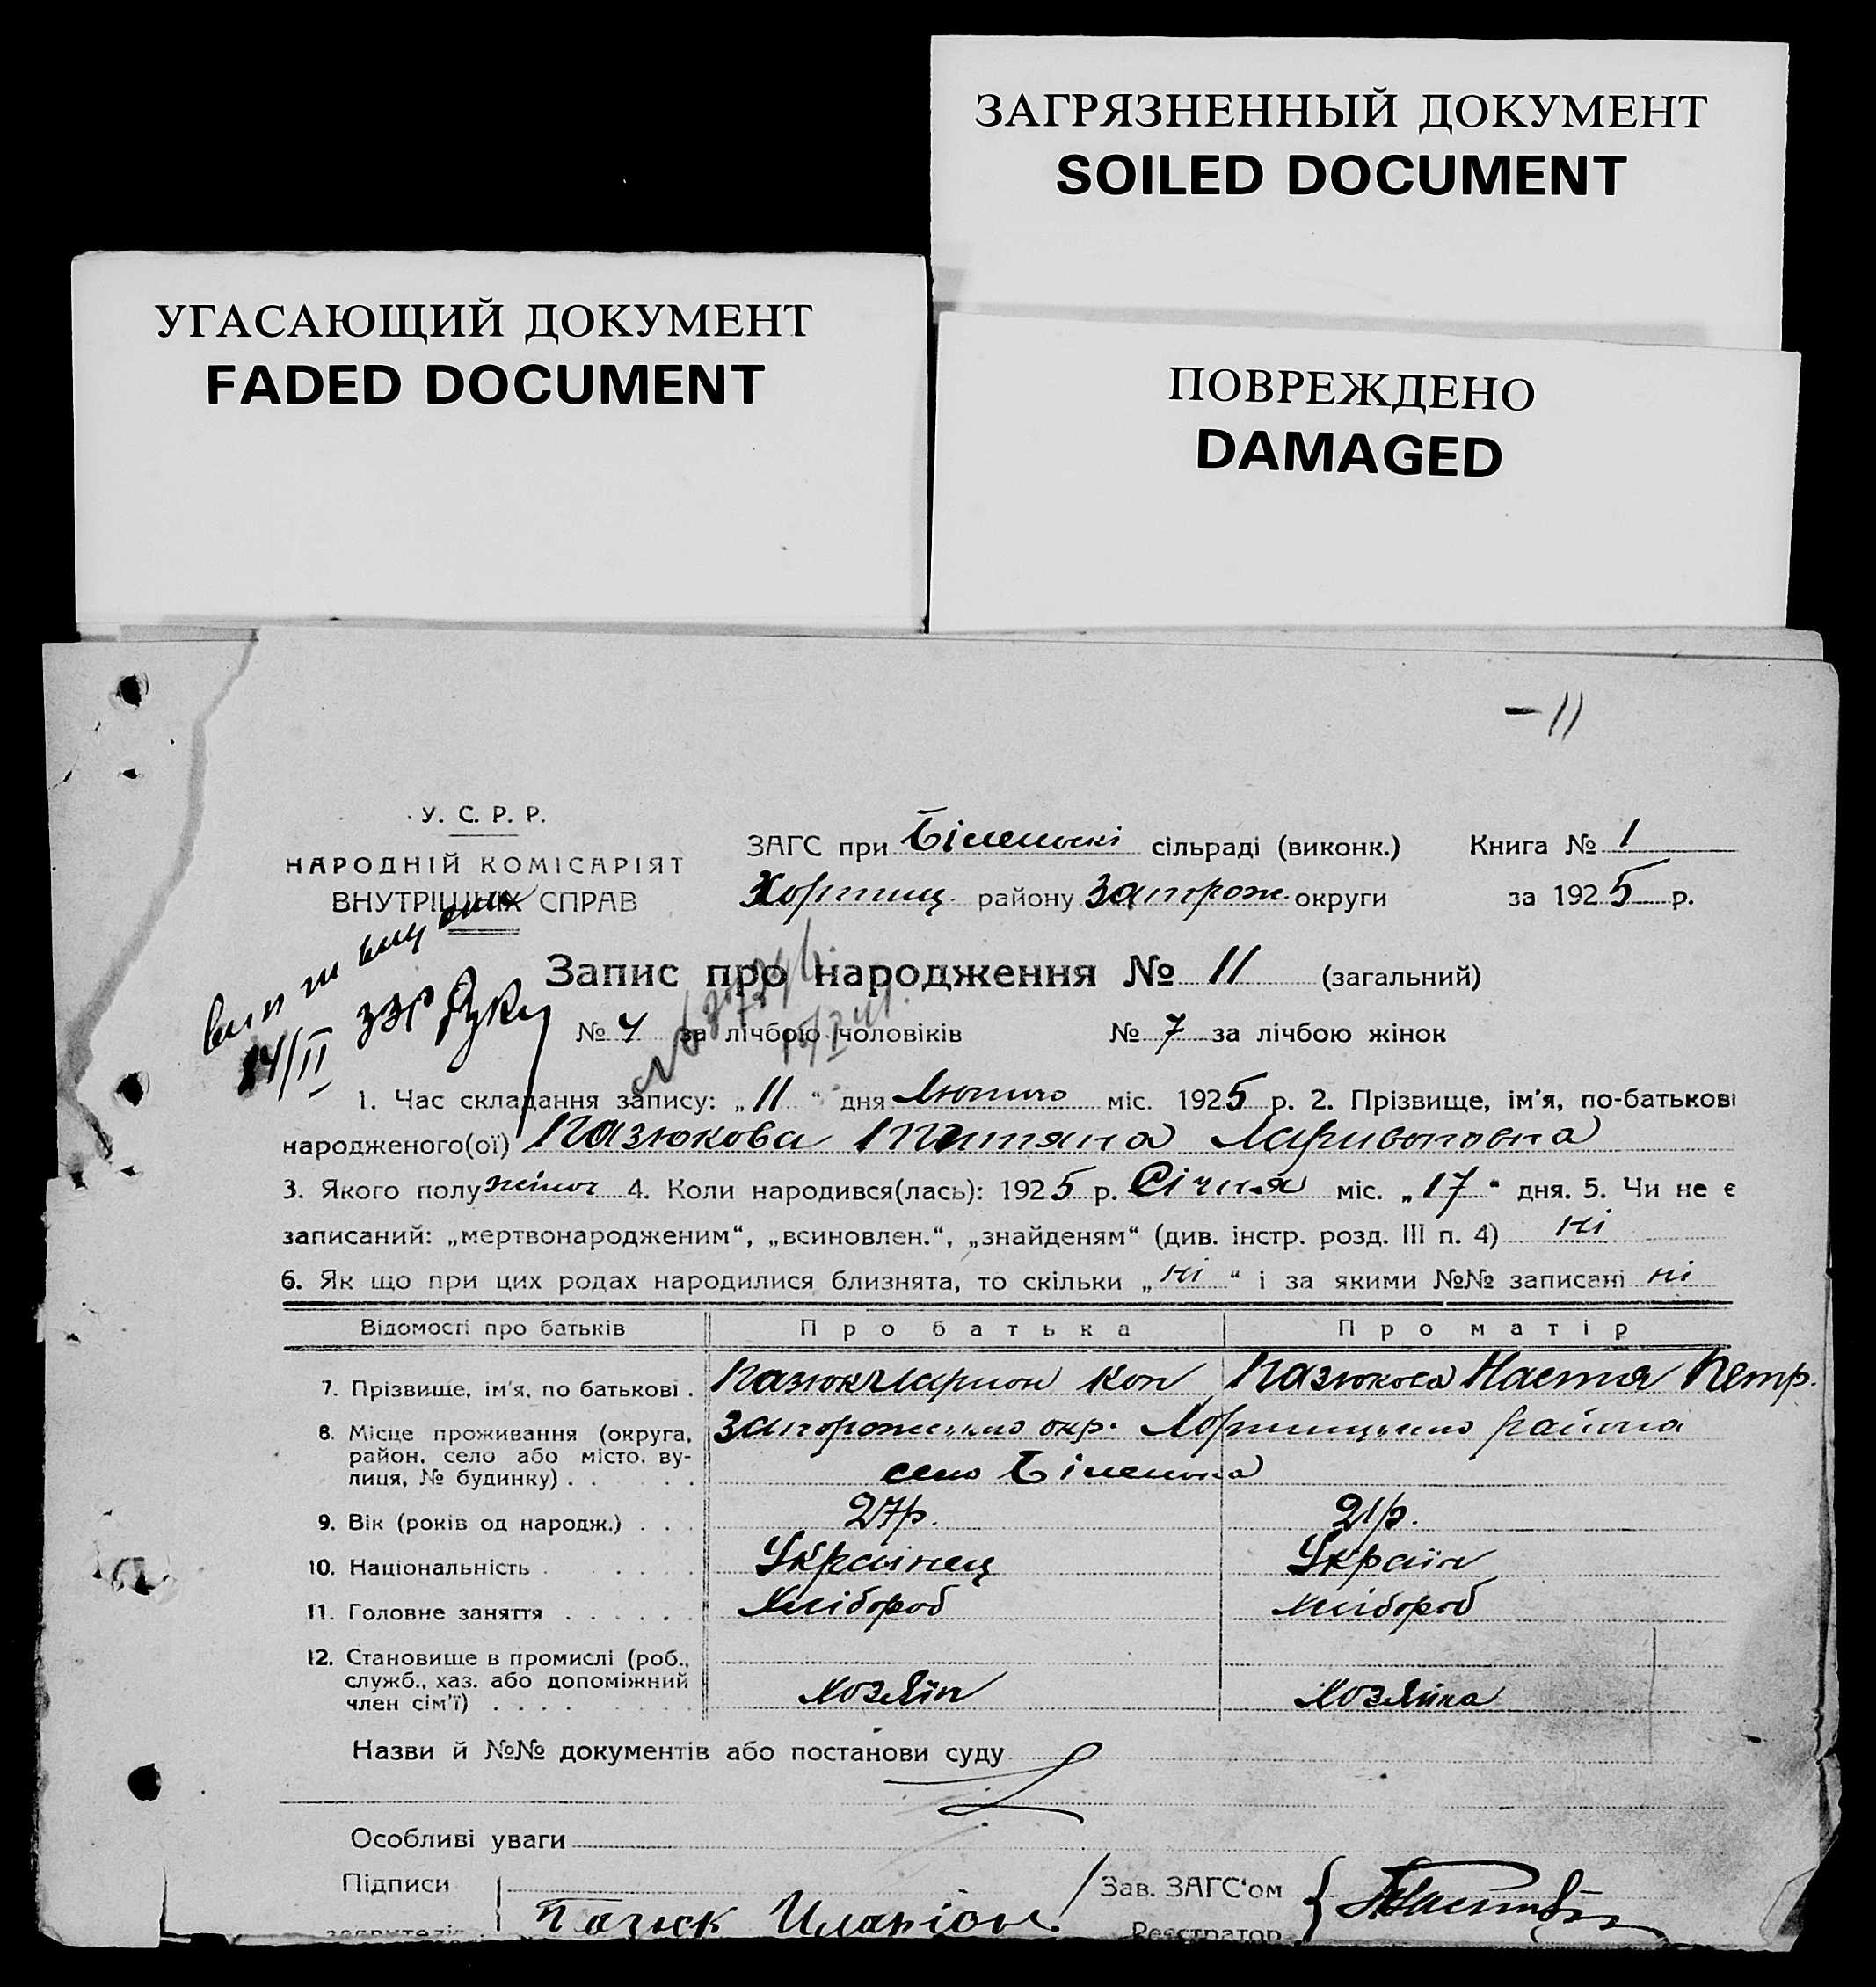 ЗАГРЯЗНЕННЫЙ ДОКУМЕНТ
SOILED DOCUMENT
УГАСАЮЩИЙ ДОКУМЕНТ
FADED DOCUMENT
ПОВРЕЖДЕНО
DAMAGED
– 11
У. С. Р. Р.
НАРОДНІЙ КОМІСАРІЯТ
ВНУТРІШНІХ СПРАВ
ЗАГС при сільраді (виконк.) Книга № 1
Хортиц. району Запорож. округи за 1925 р.
Запис про народження № 11 (загальний)
14/II
№ 4 за лічбою чоловіків № 7 за лічбою жінок
1. Час складання запису: „11“ дня Лютого міс. 1925 р. 2. Прізвище, ім'я, по-батькові
народженого(ої) Казюкова Титяна Ларивоновна
3. Якого полу жіноч 4. Коли народився(лась): 1925 р. Січня міс. „17“ дня. 5. Чи не є
записаний: „мертвонародженим“, „всиновлен.“, „знайденям“ (див. інстр. розд. III п. 4) ні
6. Як що при цих родах народилися близнята, то скільки „ні“ і за якими №№ записані ні
Відомості про батьків Про батька Про матір
7. Прізвище, ім'я, по батькові . Казюк Иларион Кон Казюкова Настя Петр.
8. Місце проживання (округа, район, село або місто, вулиця, № будинку) . . Запорожського окр. Хортицького района
село Біленька
9. Вік (років од народж.) . . . 27р. 21р.
10. Національність . . . . . Українец Україн
11. Головне заняття . . . . . . Хлібороб хлібороб
12. Становище в промислі (роб.,
служб., хаз. або допоміжний
член сім'ї) . . . . . . . . Хозяїн Хозяїна
Назви й №№ документів або постанови суду
Особливі уваги
Підписи Зав. ЗАГС'ом
Казюк Иларіон Реєстратор